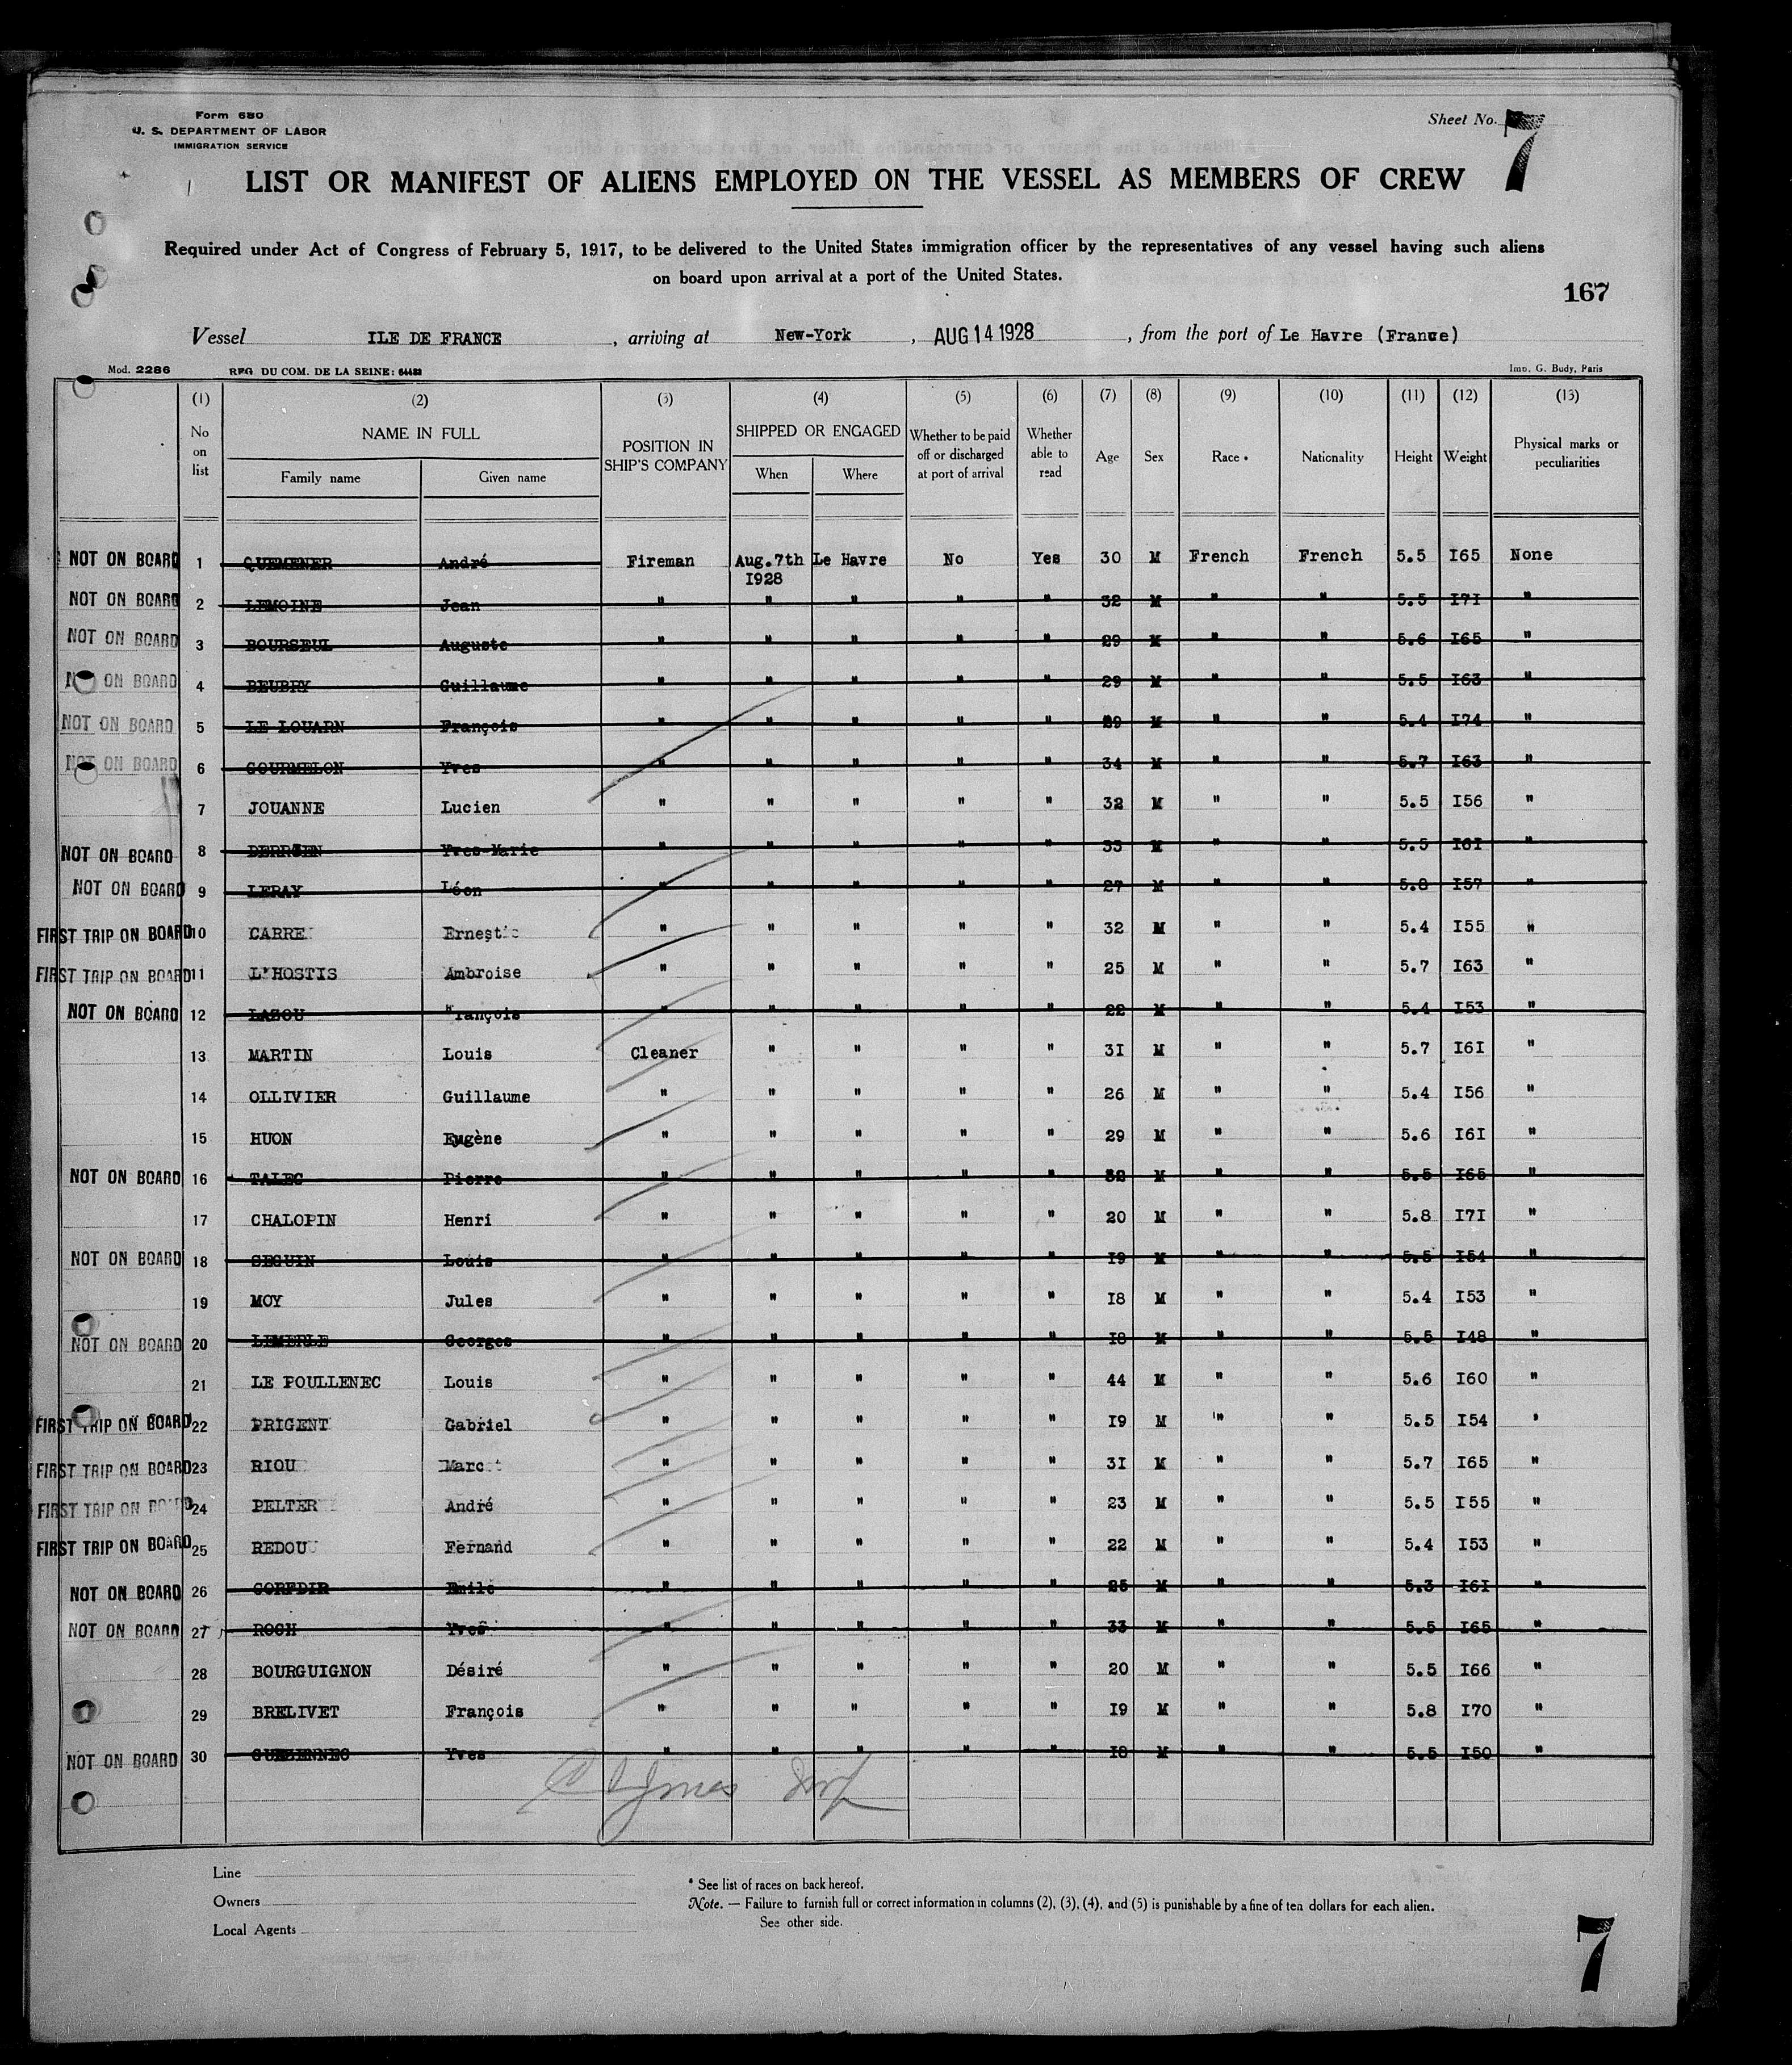 Form 680
U. S. DEPARTMENT OF LABOR
IMMIGRATION SERVICE
Sheet No. 7
LIST OR MANIFEST OF ALIENS EMPLOYED ON THE VESSEL AS MEMBERS OF CREW
Required under Act of Congress of February 5, 1917, to be delivered to the United States immigration officer by the representatives of any vessel having such aliens
on board upon arrival at a port of the United States.
167
Vessel ILE DE FRANCE , arriving at New-York , AUG 14 1928 , from the port of Le Havre (France)
Mod. 2286 REG. DU COM. DE LA SEINE: 64488 Imp. G. Budy, Paris
(1) (2) (3) (4) (5) (6) (7) (8) (9) (10) (11) (12) (13)
No on list NAME IN FULL Family name Given name POSITION IN SHIP'S COMPANY SHIPPED OR ENGAGED When Where Whether to be paid off or discharged at port of arrival Whether able to read Age Sex Race * Nationality Height Weight Physical marks or peculiarities
NOT ON BOARD 1 QUEMENER André Fireman Aug.7th Le Havre No Yes 30 M French French 5.5 I65 None
I928
NOT ON BOARD 2 LEMOINE Jean " " " " " 32 M " " 5.5 I7I "
NOT ON BOARD 3 BOURSEUL Auguste " " " " " 29 M " " 5.6 I65 "
NOT ON BOARD 4 BEUBRY Guillaume " " " " " 29 M " " 5.5 I63 "
NOT ON BOARD 5 LE LOUARN François " " " " " 29 M " " 5.4 I74 "
NOT ON BOARD 6 GOURMELON Yves " " " " " 34 M " " 5.7 I63 "
7 JOUANNE Lucien " " " " " 32 M " " 5.5 I56 "
NOT ON BOARD 8 DERRIEN Yves-Marie " " " " " 33 M " " 5.5 I6I "
NOT ON BOARD 9 LERAY Léon " " " " " 27 M " " 5.8 I57 "
FIRST TRIP ON BOARD 10 CARRE Ernest " " " " " 32 M " " 5.4 I55 "
FIRST TRIP ON BOARD 11 L'HOSTIS Ambroise " " " " " 25 M " " 5.7 I63 "
NOT ON BOARD 12 LAZOU François " " " " " 22 M " " 5.4 I53 "
13 MARTIN Louis Cleaner " " " " 3I M " " 5.7 I6I "
14 OLLIVIER Guillaume " " " " " 26 M " " 5.4 I56 "
15 HUON Eugène " " " " " 29 M " " 5.6 I6I "
NOT ON BOARD 16 TALEC Pierre " " " " " 32 M " " 5.5 I65 "
17 CHALOPIN Henri " " " " " 20 M " " 5.8 I7I "
NOT ON BOARD 18 SEGUIN Louis " " " " " I9 M " " 5.5 I54 "
19 MOY Jules " " " " " I8 M " " 5.4 I53 "
NOT ON BOARD 20 LEMERLE Georges " " " " " I8 M " " 5.5 I48 "
21 LE POULLENEC Louis " " " " " 44 M " " 5.6 I60 "
FIRST TRIP ON BOARD 22 PRIGENT Gabriel " " " " " I9 M " " 5.5 I54 "
FIRST TRIP ON BOARD 23 RIOU Marc " " " " " 3I M " " 5.7 I65 "
FIRST TRIP ON BOARD 24 PELTER André " " " " " 23 M " " 5.5 I55 "
FIRST TRIP ON BOARD 25 REDOU Fernand " " " " " 22 M " " 5.4 I53 "
NOT ON BOARD 26 CORFDIR Emile " " " " " 25 M " " 5.3 I6I "
NOT ON BOARD 27 ROCH Yves " " " " " 33 M " " 5.5 I65 "
28 BOURGUIGNON Désiré " " " " " 20 M " " 5.5 I66 "
29 BRELIVET François " " " " " I9 M " " 5.8 I70 "
NOT ON BOARD 30 GUEZENNEC Yves " " " " " I8 M " " 5.5 I50 "
Line
Owners
Local Agents
* See list of races on back hereof.
Note. — Failure to furnish full or correct information in columns (2), (3), (4), and (5) is punishable by a fine of ten dollars for each alien.
See other side.
7